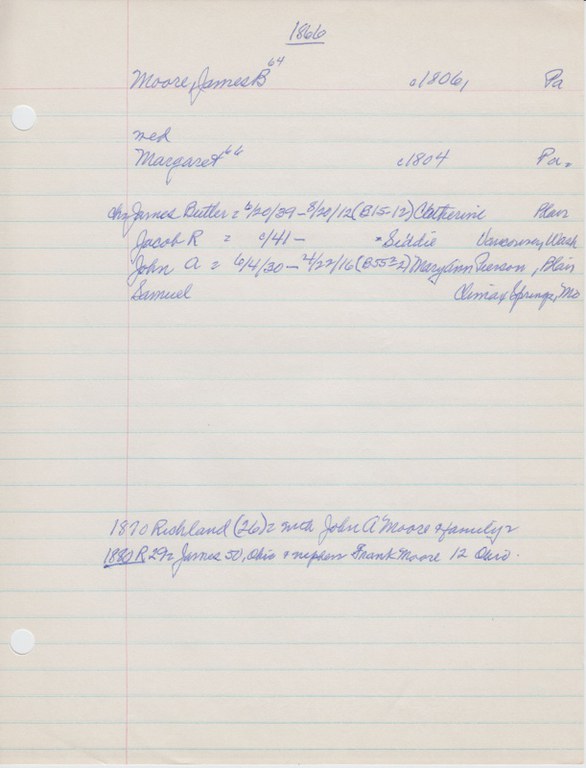 1866
Moore, James B 64 c1806, Pa
med
Margaret 66 c1804 Pa.
ch= James Butler = 6/20/39 - 8/20/12 (B15-12) Catherine Blair
Jacob R = c/41 - Siddie Vancouver, Wash
John A = 6/4/30 - 4/22/16 (B55-2) MaryAnn Pierson, Blair
Samuel Climax Springs, Mo
1870 Richland (26) = with John A Moore & family
1880 R 29= James 50, Ohio & nephew Frank Moore 12 Ohio.